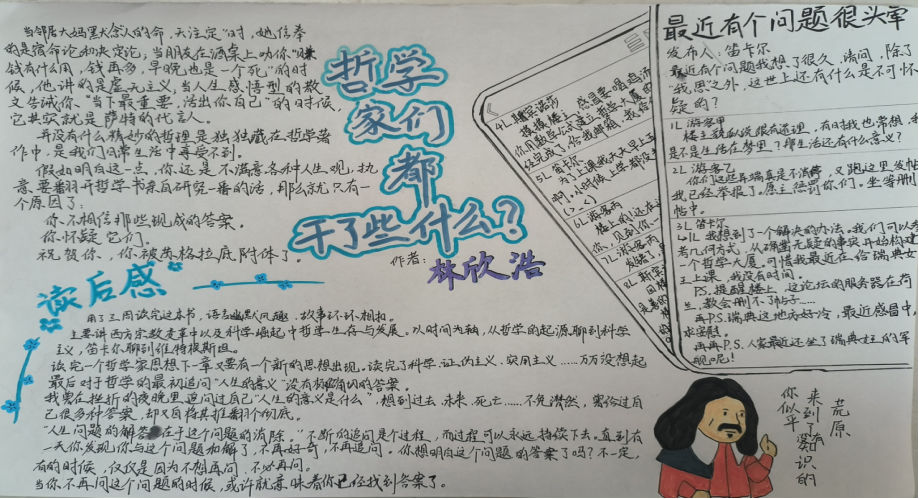 当邻居大妈黑大念人的命,天注定"时,她信奉
的是宿命论和决定论;当朋友在酒桌上劝你"赚
钱有什么用,钱再多,早晚也是一个死"的时
候,他讲的是虚无主义;当人生感悟型的散
文告诫你、"当下最重要,活出你自己"的时候,
它其实就是萨特的代言人。
并没有什么精妙的哲理是独独藏在哲学著
作中,是我们日常生活中享受不到。
假如明白这一点,你还是不满意各种人生观,执
意要翻开哲学书亲自研究一番的话,那么就只有一
个原因了:
你不相信那些现成的答案
你怀疑它们。
祝贺你,你被苏格拉底附体了。
哲学
家们
都
干了些什么?
作者:林欣浩
读后感
用了三周读完这本书,语言幽默风趣,故事环环相扣。
主要讲西方宗教变革中以及科学崛起中哲学生存与发展。以时间为轴,从哲学的起源聊到科学
主义,笛卡尔聊到维特根斯坦。
读完一个哲学家思想下一章又要有一个新的思想出现。读完了科学、证伪主义、实用主义……万万没想起
最后对于哲学的最初追问"人生的意义"没有确切的答案。
我曾在挫折的夜晚里追问过自己"人生的意义是什么",想到过去、未来、死亡……不免潸然,需份过自
己很多种答案,却又自将其推翻个彻底。
"人生问题的解答在于这个问题的消除。"不断的追问是个过程,而过程可以永远持续下去。直到有
一天你发现,你与这个问题和解了,不再好奇,不再追问。你想明白这个问题的答案了吗?不一定,
有的时候,仅仅是因为不想再问,不必再问。
当你不再问这个问题的时候,或许就意味着你已经找到答案了。
4L.斯宾诺莎
摸摸楼上,感冒要喝
你用数学公式建立哲学大厦的
经完成了,给我邮箱,我给
5L.笛卡尔
为了上课我天天早上五
啊。小时候上学都没
(>_<)
6L.游客丙
7L.游客丙
8L.斯宾
最近有个问题很头晕
发布人:笛卡尔
最近有个问题我想了很久,请问,除了
"我思"之外,这世上还有什么是不可怀
疑的?
1L.游客甲
楼主貌似说很有道理,有时我也常想,我
是不是生活在梦里?那生活还有什么意义?
2L.游客乙
你们这些异端真是不消停,又跑这里发帖
我已经举报了。原主惩罚你们。坐等删
帖中。
3L.笛卡尔
4L.我想到了一个解决的办法。我们可以参
考几何方式,从确凿无疑的事实开始构建
一个哲学大厦。可惜我最近在给瑞典女
王上课,我没有时间。
P.S.提醒楼上,这论坛的服务器在荷
兰,教会删不了帖子……
再P.S.瑞典这地方好冷,最近感冒中,
求安慰。
再再P.S.人家最近还坐了瑞典女王的军
舰呢!
你似乎
来到了没有知识的
荒原